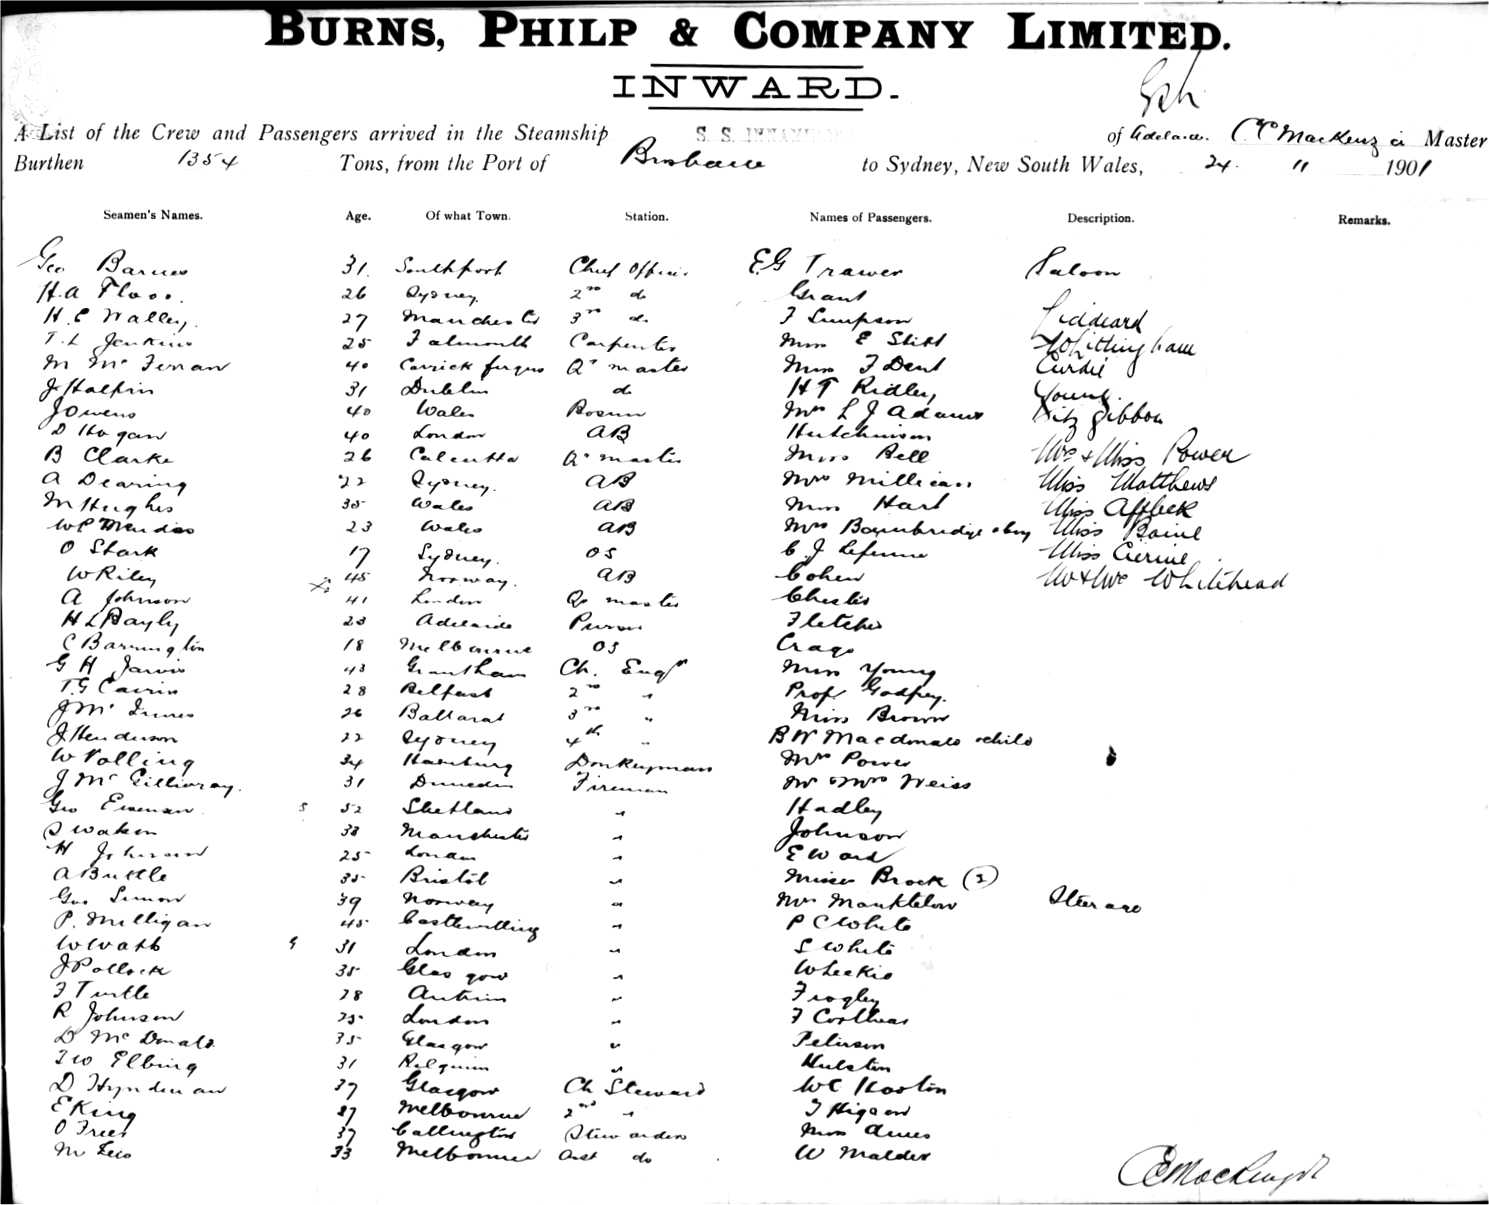 BURNS, PHILP & COMPANY LIMITED.
INWARD.
A List of the Crew and Passengers arrived in the Steamship S. S. of Adelaide. Master
Burthen 1354 Tons, from the Port of Brisbane to Sydney, New South Wales, 24. 11 1901
Seamen's Names. Age. Of what Town. Station. Names of Passengers. Description. Remarks.
Geo Barnes 31. Southport Chief Officer E G Trawer Saloon
H. A 26 Sydney. 2nd do Grant
H. C Walley. 27 Manchester 3rd do F Simpson Liddeard
T. L Jenkins 25 Falmouth Carpenter Miss E Stitt Whittingham
M 40 Carrick fergus Qr master Miss F Dent Curdie
J Halpin 31 Dublin do H T Ridley Young.
J Owens 40 Wales Bosun Mrs L J Adams Fitz gibbon
D Hogan 40 London AB Hutchinson
B Clarke 26 Calcutta Qr master Miss Bell Mrs & Miss Power
A Dearing 22 Sydney. AB Mrs Millican Miss Matthews
M Hughes 35 Wales AB Miss Hart Miss Affleck
23 Wales AB Mrs Bainbridge & boy Miss
O Stark 17 Sydney. OS C J Miss
W Riley 45 Norway. AB Cohen Mr & Mrs Whitehead
A Johnson 41 London Qr master Chester
H L Bayly 23 Adelaide Purser Fletcher
C Barrington 18 Melbourne OS Crago
G H Jarvis 43 Grantham Ch. Engr Miss Young
T. G Cairns 28 Belfast 2nd " Prof Godfrey.
J Mc Innes 26 Ballarat 3rd " Miss Brown
J Henderson 22 Sydney 4th " B W Macdonald & child
W Volling 34 Hamburg Donkeyman Mrs Power
J Mc Gillivray. 31 Dunedin Fireman Mr & Mrs Weiss
Geo 52 Shetland " Hadley
38 Manchester " Johnson
H Johnson 25 London " E Ward
A Buttle 35 Bristol " Misses Brock (2)
Geo Simon 39 Norway " Mrs Manktelow Steerage
P. Milligan 45 " P C White
W Watt 31 London " S White
J Pollock 35 Glasgow "
F Turtle 28 Antrim " Frogley
R Johnson 25 London "
D Mc Donald 35 Glasgow " Peterson
F W Elbing 31 " Hulston
D Hyndman 37 Glasgow Ch Steward W C Hooton
E King 27 Melbourne 2nd " J Higson
O Trees 37 Callington Stewardess Miss Ames
M 33 Melbourne Asst do W Malder